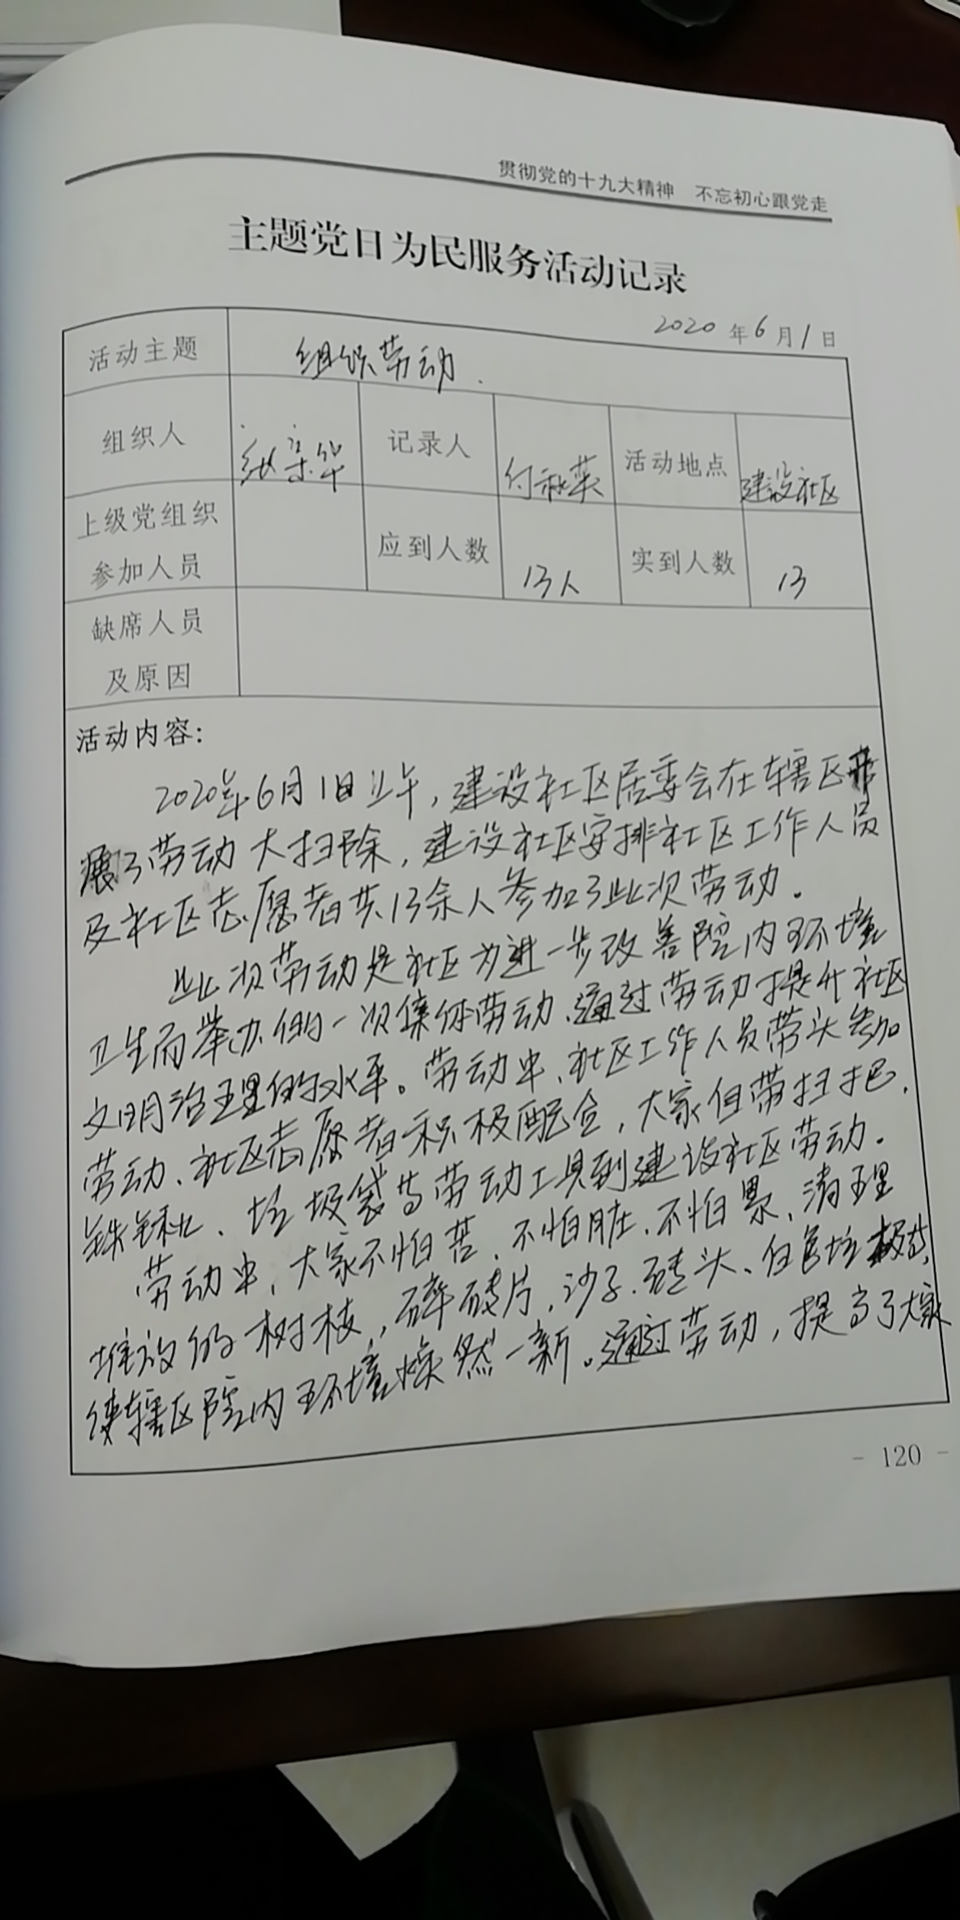 贯彻党的十九大精神 不忘初心跟党走
主题党日为民服务活动记录
2020年6月1日
活动主题 组织劳动.
组织人 记录人 付秋英 活动地点 建设社区
上级党组织参加人员 应到人数 13人 实到人数 13
缺席人员
及原因
活动内容:
2020年6月1日上午,建设社区居委会在辖区开
展了劳动大扫除,建设社区安排社区工作人员
及社区志愿者共13余人参加了此次劳动。
此次劳动是社区为进一步改善院内环境
卫生而举办的一次集体劳动、通过劳动提升社区
文明治理的水平。劳动中、社区工作人员带头参加
劳动、社区志愿者积极配合,大家自带扫把、
铁锹、垃圾袋等劳动工具到建设社区劳动。
劳动中,大家不怕苦、不怕脏、不怕累、清理
堆放的树枝,碎砖片,沙子、砖头、白色垃圾等,
使辖区院内环境焕然一新。通过劳动,提高了大家
- 120 -